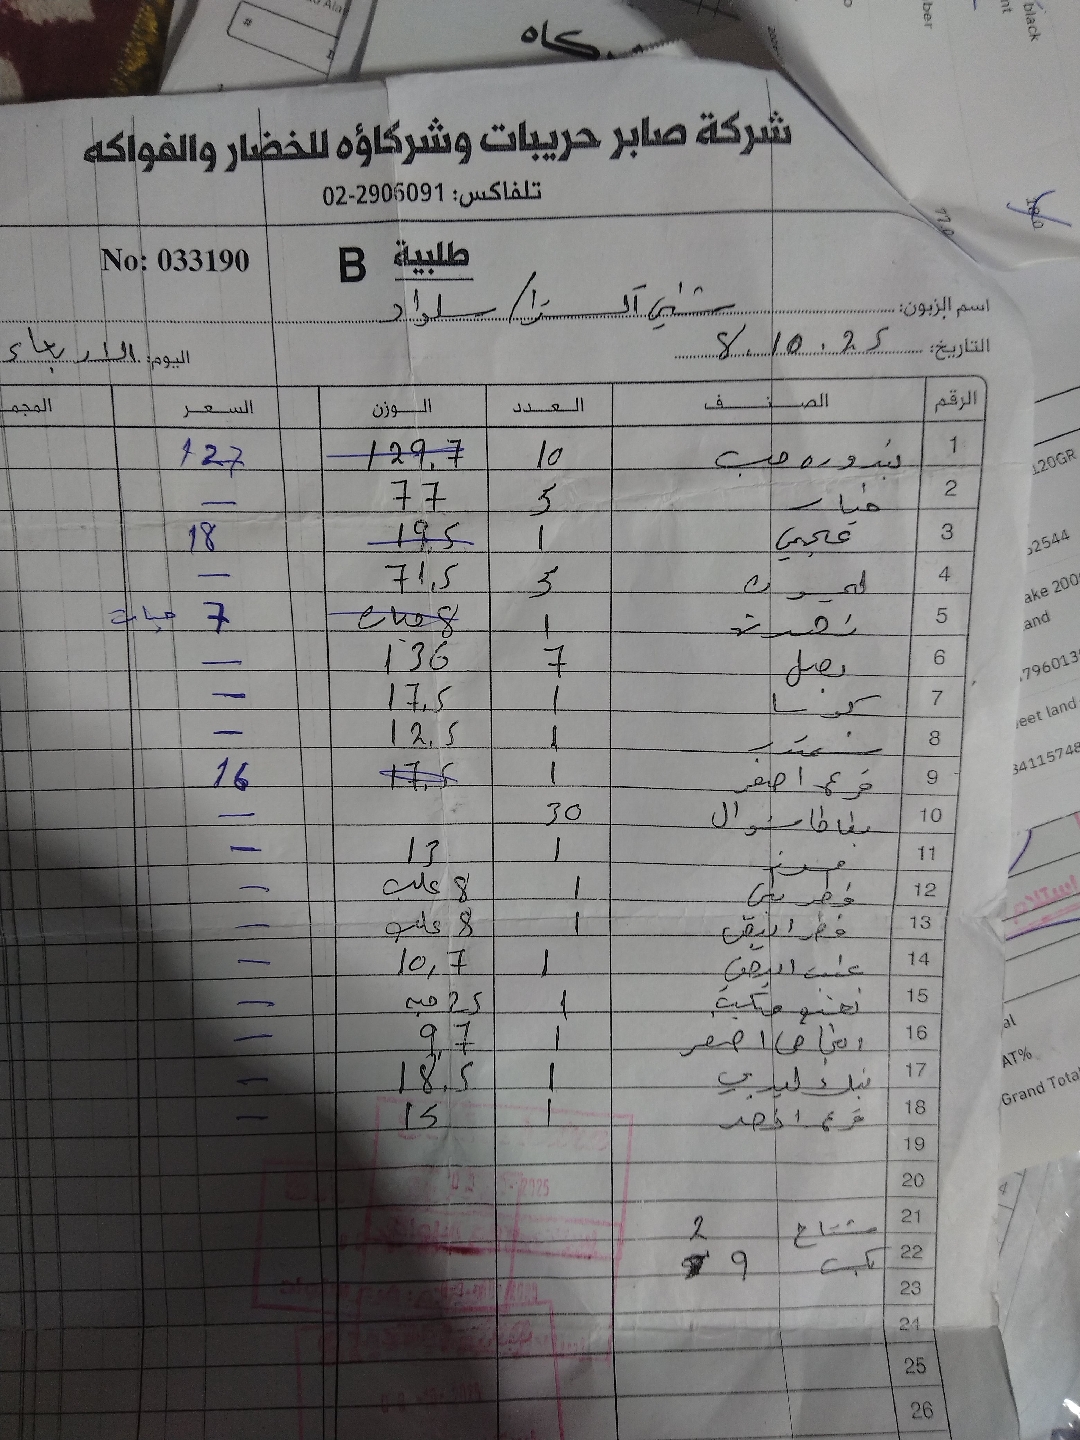 شركة صابر حريبات وشركاؤه للخضار والفواكه
تلفاكس: 02-2906091
No: 033190 B طلبية
اسم الزبون: / سلواد
التاريخ: 8.10.25 اليوم: الاربعاء
الرقم الصنف العدد الوزن السعر المجم
1 بندوره حب 10 129.7 127
2 خيار 5 77 —
3 عجمي 1 19.5 18
4 ليمون 5 71.5 —
5 1 8 حبات 7 حبات
6 بصل 7 136 —
7 كوسا 1 17.5 —
8 شمندر 1 12.5 —
9 قرع اصفر 1 17.5 16 
10 بطاطا شوال 30 —
11 1 13 —
12 فطر بني 1 8 علب —
13 فطر ابيض 1 8 علب —
14 عنب 1 10,7 —
15 نعنع 1 25 حبه —
16 اصفر 1 9,7 —
17 بنك ليدي 1 18.5 —
18 قرع اخضر 1 15 —
19
20
21 مشتاح 2
22 9
23
24
25
26